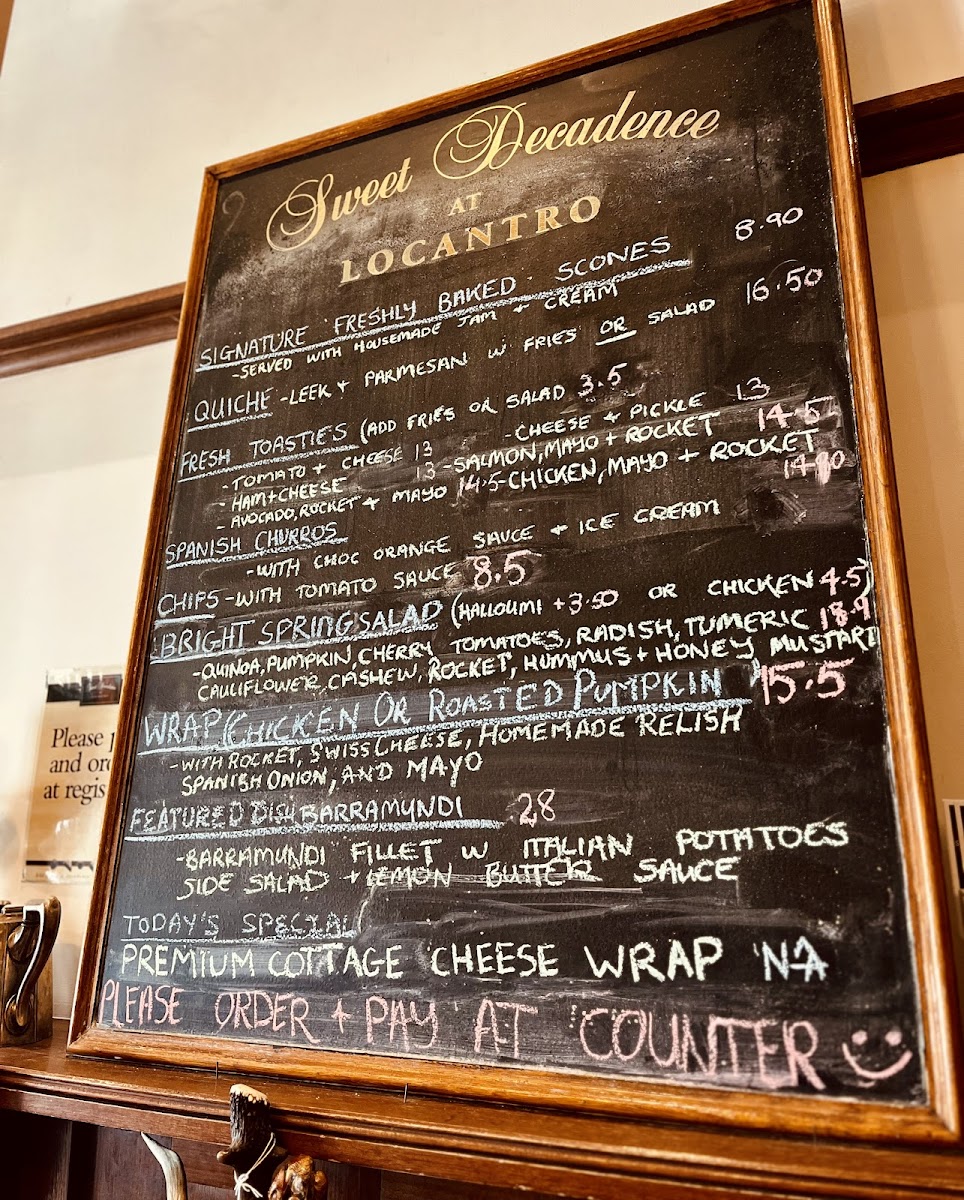 Sweet Decadence
AT
LOCANTRO
SIGNATURE FRESHLY BAKED SCONES 8.90
-SERVED WITH HOUSEMADE JAM + CREAM
QUICHE -LEEK + PARMESAN W FRIES OR SALAD 16.50
FRESH TOASTIES (ADD FRIES OR SALAD 3.5
-TOMATO + CHEESE 13 -CHEESE + PICKLE 13
-HAM+CHEESE 13 -SALMON, MAYO + ROCKET 14.5
-AVOCADO, ROCKET + MAYO 14.5 -CHICKEN, MAYO + ROCKET
SPANISH CHURROS
-WITH CHOC ORANGE SAUCE + ICE CREAM
CHIPS -WITH TOMATO SAUCE 8.5
BRIGHT SPRING SALAD (HALLOUMI +3.50 OR CHICKEN 4.5)
-QUINOA, PUMPKIN, CHERRY TOMATOES, RADISH, TUMERIC 18.9
CAULIFLOWER, CASHEW, ROCKET, HUMMUS + HONEY MUSTARD
WRAP (CHICKEN OR ROASTED PUMPKIN 15.5
-WITH ROCKET, SWISS CHEESE, HOMEMADE RELISH
SPANISH ONION, AND MAYO
FEATURED DISH BARRAMUNDI 28
-BARRAMUNDI FILLET W ITALIAN POTATOES
SIDE SALAD + LEMON BUTTER SAUCE
TODAY'S SPECIAL
PREMIUM COTTAGE CHEESE WRAP NA
PLEASE ORDER + PAY AT COUNTER
Please
and or
at regis